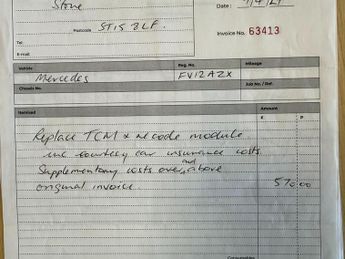 Stone
Date:
Postcode ST15 8LF.
Tel:
Invoice No. 63413
E-mail:
Vehicle Reg. No. Mileage
Mercedes FV12AZX
Chassis No. Job No. / Ref.
Itemised Amount
£ P
Replace TCM & recode module
inc courtesy car insurance costs
Supplementary costs over and above
original invoice. 570.00
Consumables